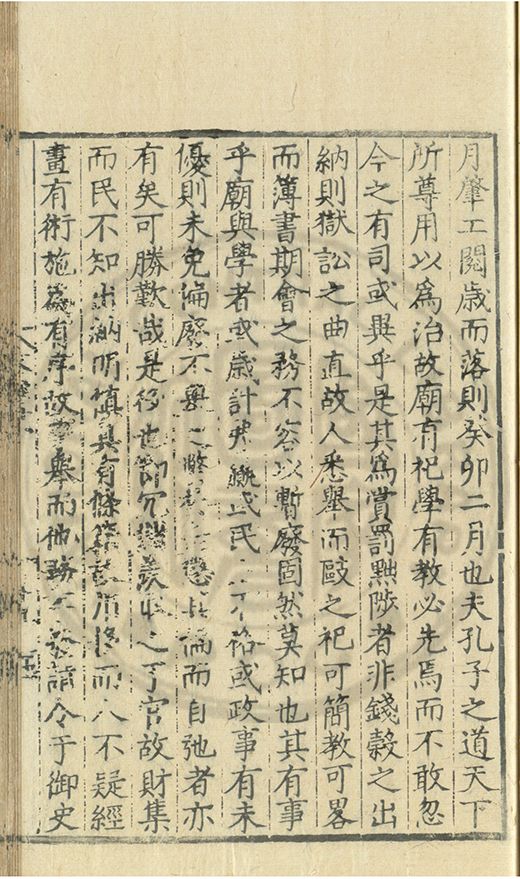 月肇工閱歲而落則癸卯二月也夫孔子之道天下
所尊用以爲治故廟有祀學有教必先焉而不敢忽
今之有司或異乎是其爲賞罰黜陟者非錢穀之出
納則獄訟之曲直故人悉舉而敺之祀可簡教可畧
而薄書期會之務不容以暫廢固然莫知也其有事
乎廟與學者或歲計民或政事有未
優則未免偏廢不舉之弊而自弛者亦
有矣可勝歎哉是役也之于官故財集
而民不知出納明慎具有而人不疑經
畫有術施爲有序故舉而他務不令于御史